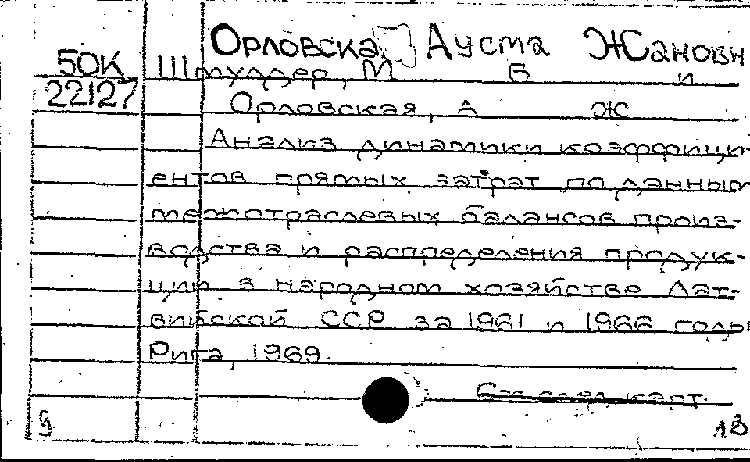 Орловска Ауста Жановн
50К Штулдер, М Б и
22127 Орловская, А Ж
Анализ динамики коэффици-
ентов прямых затрат по данным
межотраслевых балансов произ-
водства и распределения продук-
ции в народном хозяйстве Лат-
вийской ССР за 1961 и 1966 годы
Рига, 1969.
См след. карт.
9 18